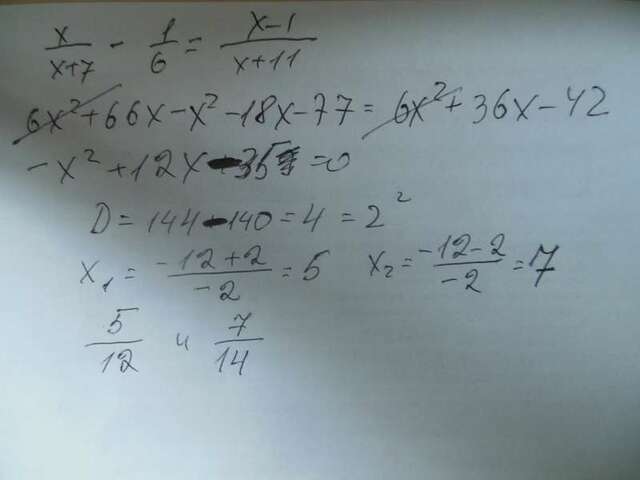 x/(x+7) - 1/6 = (x-1)/(x+11)
6x² + 66x - x² - 18x - 77 = 6x² + 36x - 42
-x² + 12x - 35 = 0
D = 144 - 140 = 4 = 2²
x₁ = (-12+2)/(-2) = 5 x₂ = (-12-2)/(-2) = 7
5/12 и 7/14